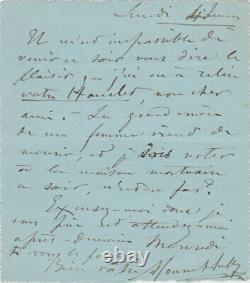 Lundi
Il m'est impossible de
venir ce soir vous dire le
plaisir que j'ai eu à relire
votre Hamlet mon cher
ami. - La grand-mère
de ma femme vient de
mourir, et je dois rester
à la maison mortuaire
ce soir, n'est-ce pas?
Excusez-moi donc je
vous prie et attendez-moi
après-demain Mercredi
vous le
Bien à vous